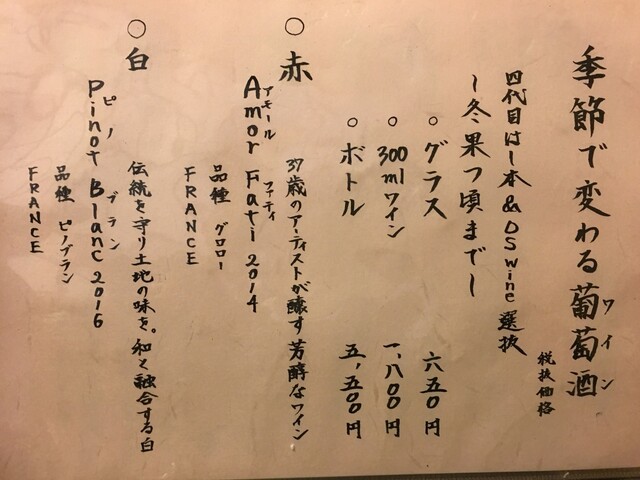 季節で変わる葡萄酒
ワイン
税抜価格
四代目はし本&DSwine選抜
〜冬果つ頃まで〜
○グラス 六五〇円
○300mlワイン 一、八〇〇円
○ボトル 五、五〇〇円
○赤
37歳のアーティストが醸す芳醇なワイン
アモール ファティ
Amor Fati 2014
品種 グロロー
FRANCE
○白
伝統を守り土地の味を。和と融合する白
ピノ ブラン
Pinot Blanc 2016
品種 ピノブラン
FRANCE